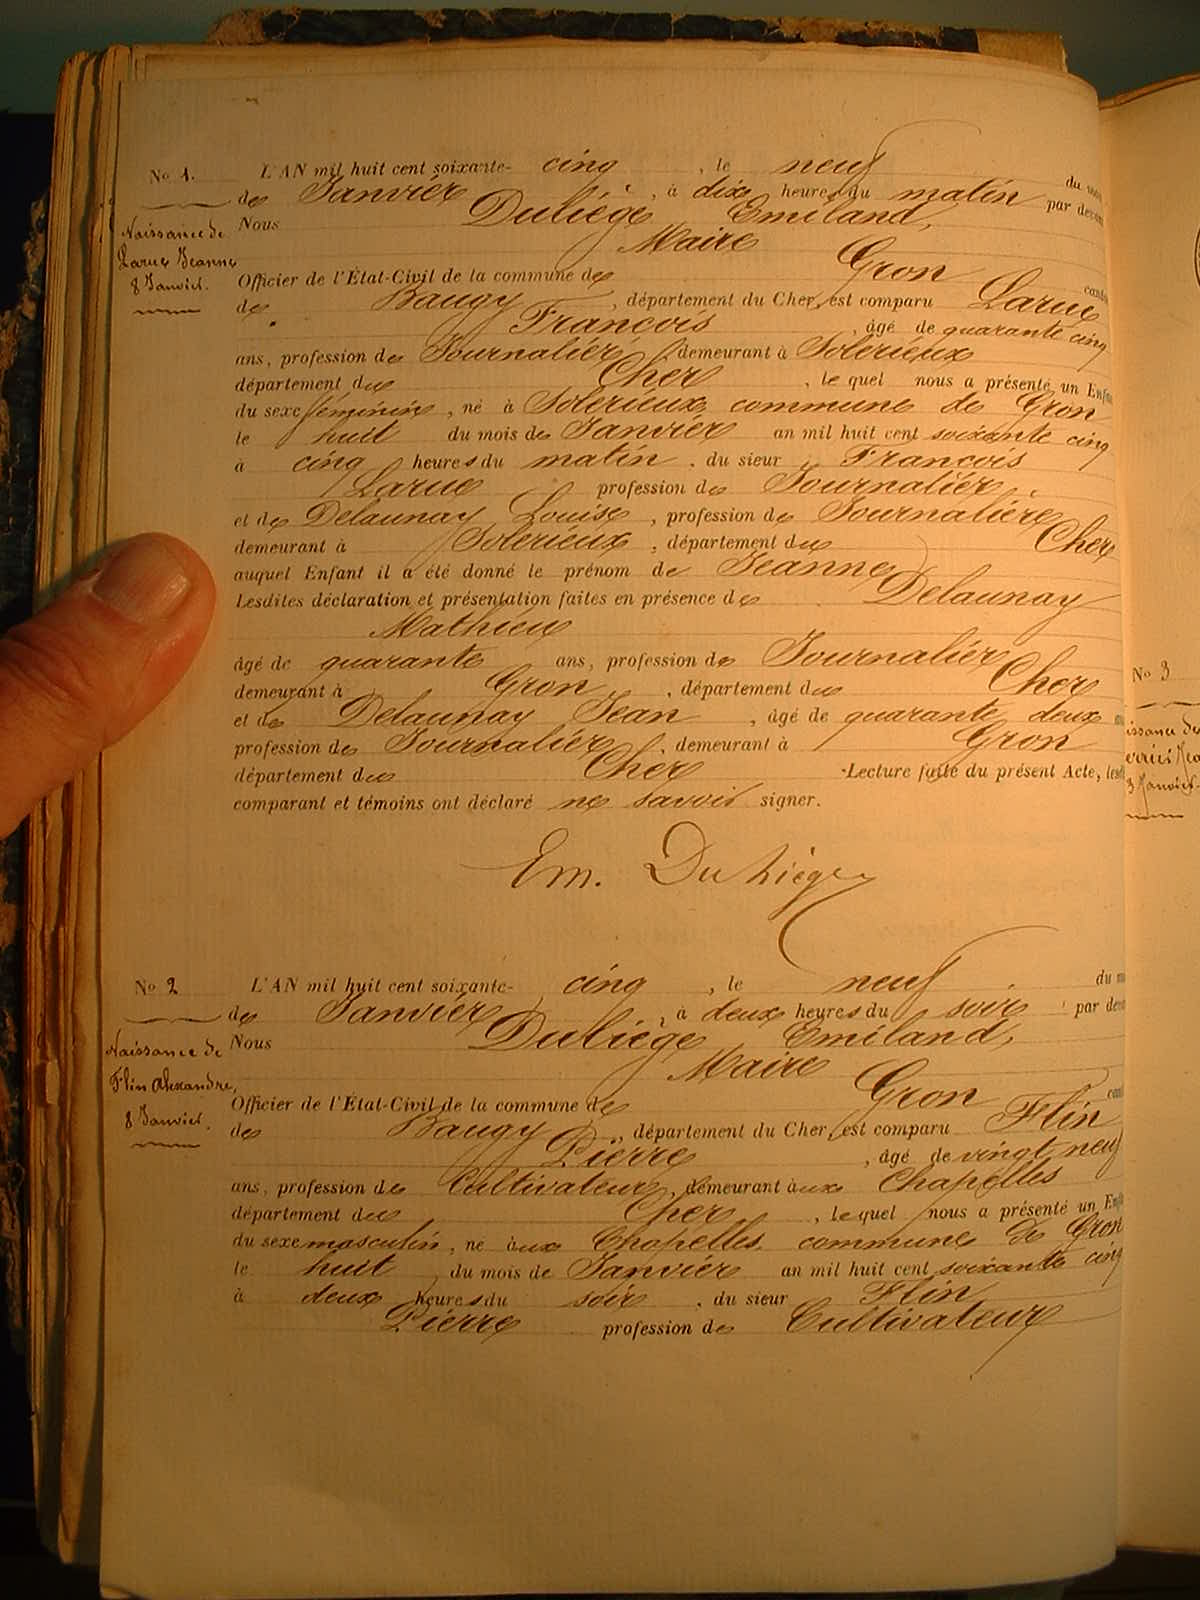 No 1.
Naissance de
Larue Jeanne
8 Janvier.
L'AN mil huit cent soixante- cinq , le neuf du mois
de Janvier , à dix heures du matin par devant
Nous Duliège Emiland,
Maire
Officier de l'État-Civil de la commune de Gron canton
de Baugy , département du Cher, est comparu Larue
François , âgé de quarante cinq
ans, profession de Journalier, demeurant à Solerieux
département du Cher , lequel nous a présenté un Enfant
du sexe féminin , né à Solerieux, commune de Gron
le huit du mois de Janvier an mil huit cent soixante cinq
à cinq heures du matin , du sieur François
Larue profession de Journalier,
et de Delaunay Louise , profession de Journalière
demeurant à Solerieux , département du Cher
auquel Enfant il a été donné le prénom de Jeanne
Lesdites déclaration et présentation faites en présence de Delaunay
Mathieu
âgé de quarante ans, profession de Journalier
demeurant à Gron , département du Cher
et de Delaunay Jean , âgé de quarante deux
profession de Journalier, demeurant à Gron
département du Cher Lecture faite du présent Acte, les
comparant et témoins ont déclaré ne savoir signer.
Em. Duliège
No 2
Naissance de
Flin Alexandre,
8 Janvier.
L'AN mil huit cent soixante- cinq , le neuf du
de Janvier , à deux heures du soir par
Nous Duliège Emiland,
Maire
Officier de l'État-Civil de la commune de Gron
de Baugy , département du Cher, est comparu Flin
Pierre , âgé de vingt neuf
ans, profession de Cultivateur, demeurant aux Chapelles
département du Cher , lequel nous a présenté un Enfant
du sexe masculin , né aux Chapelles, commune de Gron
le huit du mois de Janvier an mil huit cent soixante cinq
à deux heures du soir , du sieur Flin
Pierre profession de Cultivateur
No 3